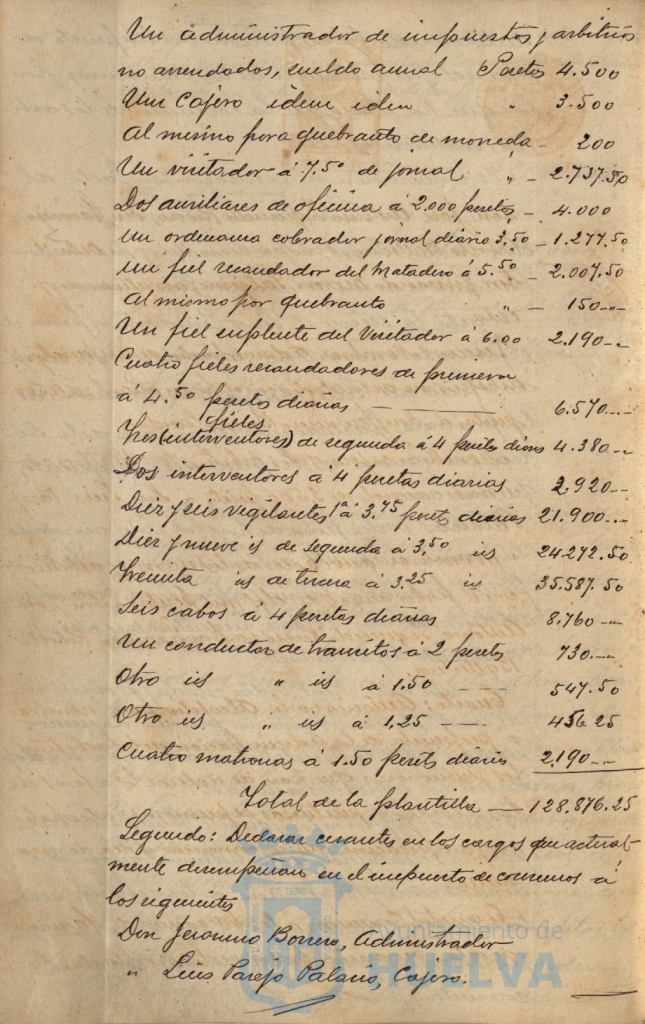 Un administrador de impuestos y arbitrios
no arrendados, sueldo anual Pesetas 4.500
Un Cajero idem idem " 3.500
Al mismo para quebranto de moneda - 200
Un visitador á 7.50 de jornal " - 2.737.50
Dos auxiliares de oficina á 2.000 pesetas - 4.000
Un ordenanza cobrador jornal diario 3,50 - 1.277.50
Un fiel recaudador del Matadero á 5.50 - 2.007.50
Al mismo por quebranto " - 150-"-
Un fiel suplente del Visitador á 6.00 2.190-"
Cuatro fieles recaudadores de primera
á 4.50 pesetas diarias — 6.570-"-
fieles
Tres (interventores) de segunda á 4 pesetas diarias 4.380-"
Dos interventores á 4 pesetas diarias 2.920-"
Diez y seis vigilantes 1ª á 3,75 pesets diarias 21.900-"-
Diez y nueve id de segunda á 3,50 id 24.272.50
Treinta id de tercera á 3.25 id 35.587.50
Seis cabos á 4 pesetas diarias 8.760-"
Un conductor de transitos á 2 pesetas 730-"-
Otro id " id á 1.50 --- 547.50
Otro id " id á 1,25 --- 456.25
Cuatro matronas á 1.50 pesets diarias 2.190-"-
Total de la plantilla — 128.876.25
Segundo: Declarar cesantes en los cargos que actual-
mente desempeñan en el impuesto de consumos á
los siguientes
Don Jeronimo Borrero, Administrador
" Luis Parejo Palacio, Cajero.
Ayuntamiento de
HUELVA